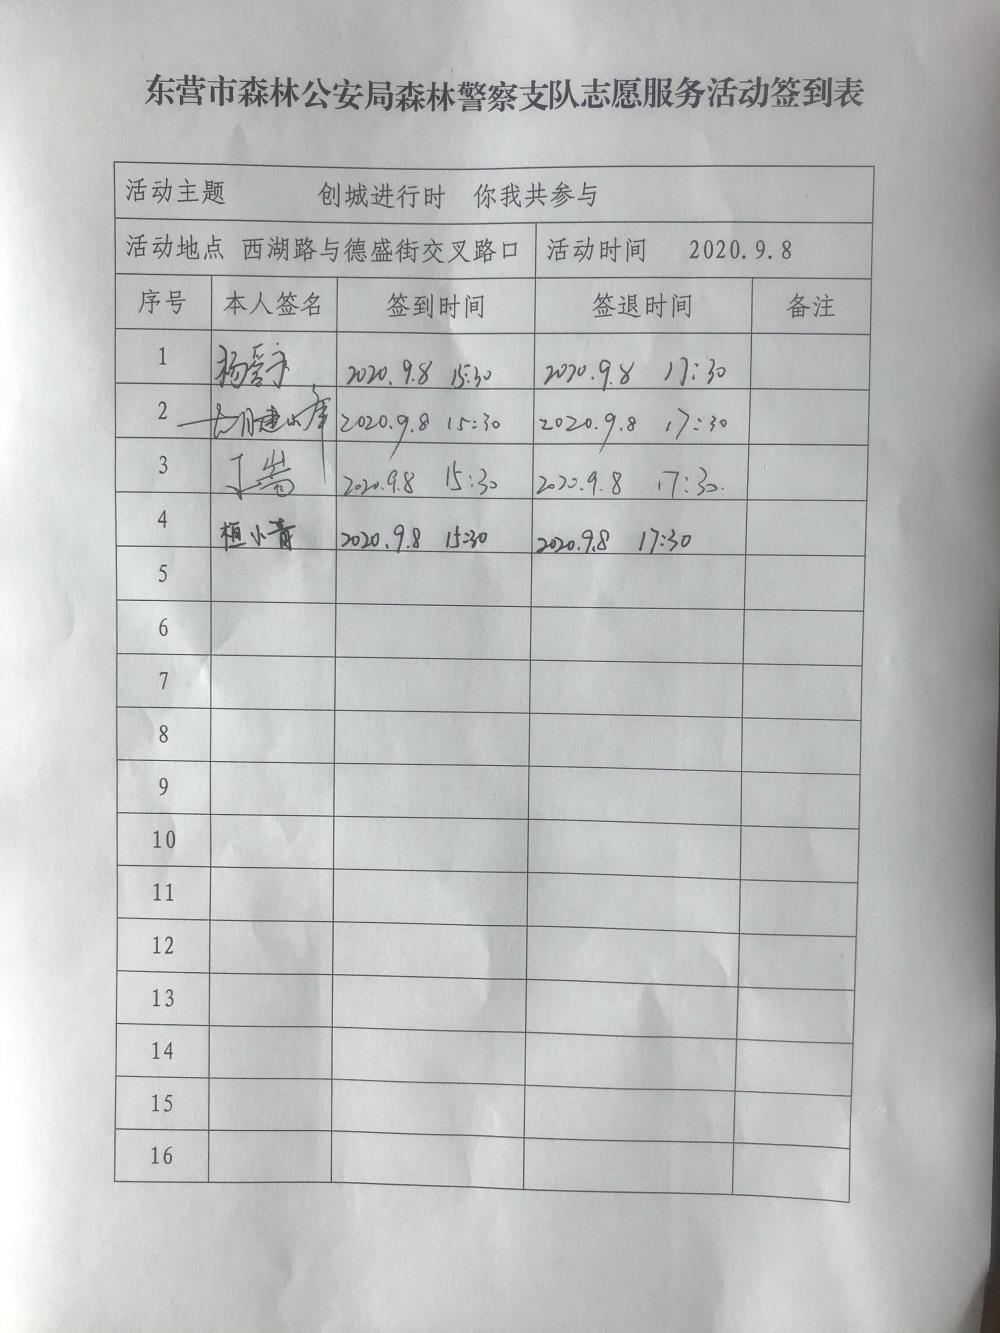 东营市森林公安局森林警察支队志愿服务活动签到表
活动主题 创城进行时 你我共参与
活动地点 西湖路与德盛街交叉路口 活动时间 2020.9.8
序号 本人签名 签到时间 签退时间 备注
1 2020.9.8 15:30 2020.9.8 17:30
2 2020.9.8 15:30 2020.9.8 17:30
3 丁 2020.9.8 15:30 2020.9.8 17:30.
4 植小青 2020.9.8 15:30 2020.9.8 17:30
5
6
7
8
9
10
11
12
13
14
15
16